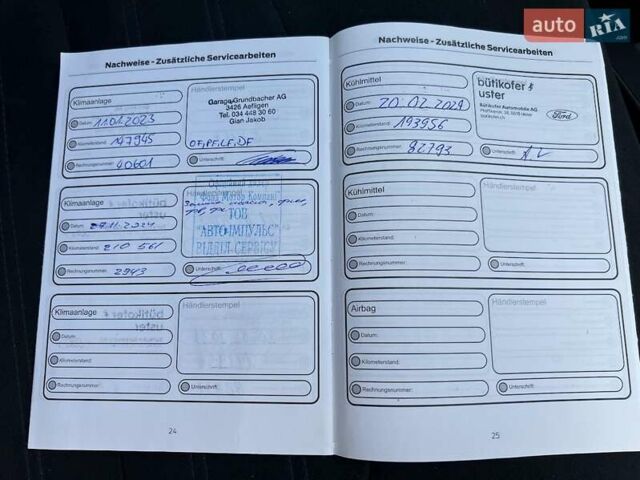 auto RIA.com
Nachweise - Zusätzliche Servicearbeiten
Klimaanlage
Datum: 11.01.2023
Kilometerstand: 147945
Rechnungsnummer: 40601
Händlerstempel
Garage Grundbacher AG
3426 Aefligen
Tel. 034 448 30 60
Gian Jakob
Unterschrift:
Klimaanlage
Datum: 27.11.2024
Kilometerstand: 210 561
Rechnungsnummer: 2943
Händlerstempel
ТОВ
"АВТО-ІМПУЛЬС"
ВІДДІЛ СЕРВІСУ
Unterschrift:
Klimaanlage
Datum:
Kilometerstand:
Rechnungsnummer:
Händlerstempel
Unterschrift:
24
Nachweise - Zusätzliche Servicearbeiten
Kühlmittel
Datum: 20.02.2024
Kilometerstand: 193956
Rechnungsnummer: 82793
Händlerstempel
bütikofer
uster
Bütikofer Automobile AG
Ford
Unterschrift:
Kühlmittel
Datum:
Kilometerstand:
Rechnungsnummer:
Händlerstempel
Unterschrift:
Airbag
Datum:
Kilometerstand:
Rechnungsnummer:
Händlerstempel
Unterschrift:
25